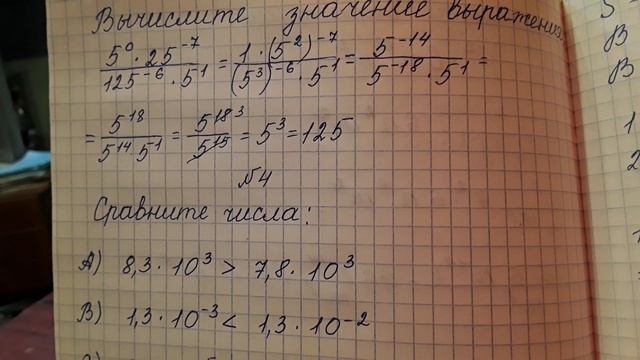 Вычислите значение выражения
5⁰ · 25⁻⁷ / 125⁻⁶ · 5¹ = 1 · (5²)⁻⁷ / (5³)⁻⁶ · 5¹ = 5⁻¹⁴ / 5⁻¹⁸ · 5¹ =
= 5¹⁸ / 5¹⁴ 5¹ = 5¹⁸ ³ / 5¹⁵ = 5³ = 125
№4
Сравните числа:
А) 8,3 · 10³ > 7,8 · 10³
В) 1,3 · 10⁻³ < 1,3 · 10⁻²
5
В
В
1
2